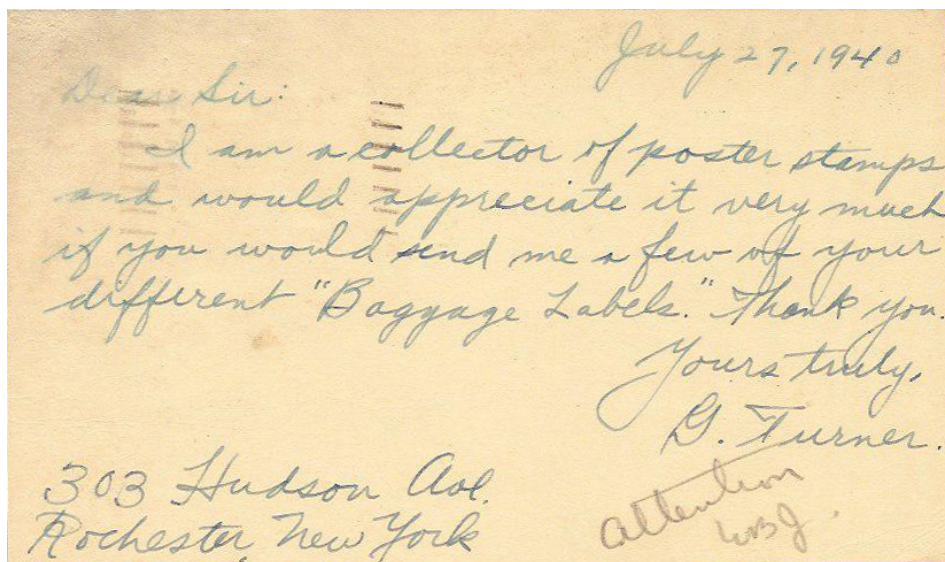 July 27, 1940
Dear Sir:
I am a collector of poster stamps
and would appreciate it very much
if you would send me a few of your
different "Baggage Labels." Thank you.
Yours truly,
G. Turner.
303 Hudson Ave.
Rochester, New York
Attention
WBJ.